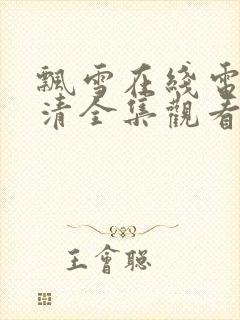 飄雪在綫電
清全集觀看
王會聰